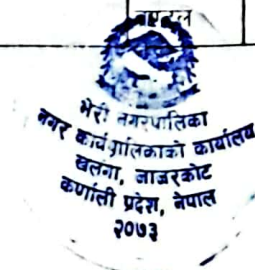 भेरी नगरपालिका
नगर कार्यपालिकाको कार्यालय
खलंगा, जाजरकोट
कर्णाली प्रदेश, नेपाल
२०७३